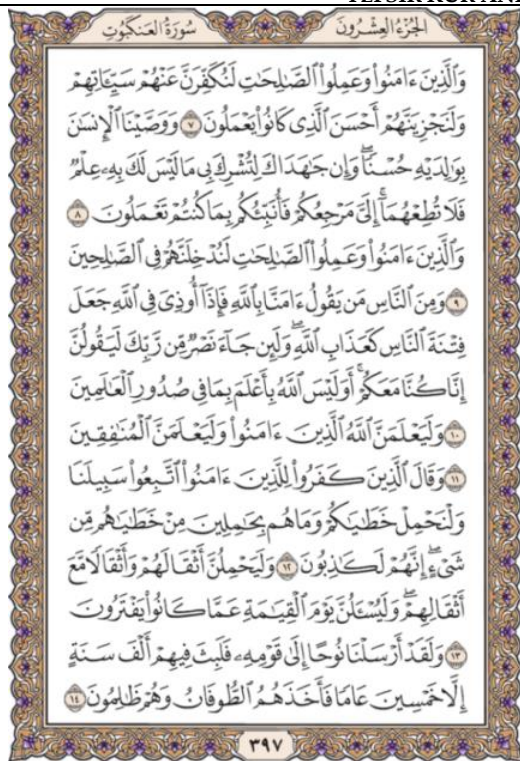 الجُزْءُ العِشْرُونَ سُورَةُ العَنكَبُوتِ
وَٱلَّذِينَ ءَامَنُواْ وَعَمِلُواْ ٱلصَّٰلِحَٰتِ لَنُكَفِّرَنَّ عَنْهُمْ سَيِّـَٔاتِهِمْ
وَلَنَجْزِيَنَّهُمْ أَحْسَنَ ٱلَّذِى كَانُواْ يَعْمَلُونَ ٧ وَوَصَّيْنَا ٱلْإِنسَٰنَ
بِوَٰلِدَيْهِ حُسْنًاۖ وَإِن جَٰهَدَاكَ لِتُشْرِكَ بِى مَا لَيْسَ لَكَ بِهِۦ عِلْمٌ
فَلَا تُطِعْهُمَآۚ إِلَىَّ مَرْجِعُكُمْ فَأُنَبِّئُكُم بِمَا كُنتُمْ تَعْمَلُونَ ٨
وَٱلَّذِينَ ءَامَنُواْ وَعَمِلُواْ ٱلصَّٰلِحَٰتِ لَنُدْخِلَنَّهُمْ فِى ٱلصَّٰلِحِينَ
٩ وَمِنَ ٱلنَّاسِ مَن يَقُولُ ءَامَنَّا بِٱللَّهِ فَإِذَآ أُوذِىَ فِى ٱللَّهِ جَعَلَ
فِتْنَةَ ٱلنَّاسِ كَعَذَابِ ٱللَّهِۖ وَلَئِن جَآءَ نَصْرٌ مِّن رَّبِّكَ لَيَقُولُنَّ
إِنَّا كُنَّا مَعَكُمْۚ أَوَلَيْسَ ٱللَّهُ بِأَعْلَمَ بِمَا فِى صُدُورِ ٱلْعَٰلَمِينَ
١٠ وَلَيَعْلَمَنَّ ٱللَّهُ ٱلَّذِينَ ءَامَنُواْ وَلَيَعْلَمَنَّ ٱلْمُنَٰفِقِينَ
١١ وَقَالَ ٱلَّذِينَ كَفَرُواْ لِلَّذِينَ ءَامَنُواْ ٱتَّبِعُواْ سَبِيلَنَا
وَلْنَحْمِلْ خَطَٰيَٰكُمْ وَمَا هُم بِحَٰمِلِينَ مِنْ خَطَٰيَٰهُم مِّن
شَىْءٍۖ إِنَّهُمْ لَكَٰذِبُونَ ١٢ وَلَيَحْمِلُنَّ أَثْقَالَهُمْ وَأَثْقَالًا مَّعَ
أَثْقَالِهِمْۖ وَلَيُسْـَٔلُنَّ يَوْمَ ٱلْقِيَٰمَةِ عَمَّا كَانُواْ يَفْتَرُونَ
١٣ وَلَقَدْ أَرْسَلْنَا نُوحًا إِلَىٰ قَوْمِهِۦ فَلَبِثَ فِيهِمْ أَلْفَ سَنَةٍ
إِلَّا خَمْسِينَ عَامًا فَأَخَذَهُمُ ٱلطُّوفَانُ وَهُمْ ظَٰلِمُونَ ١٤
٣٩٧